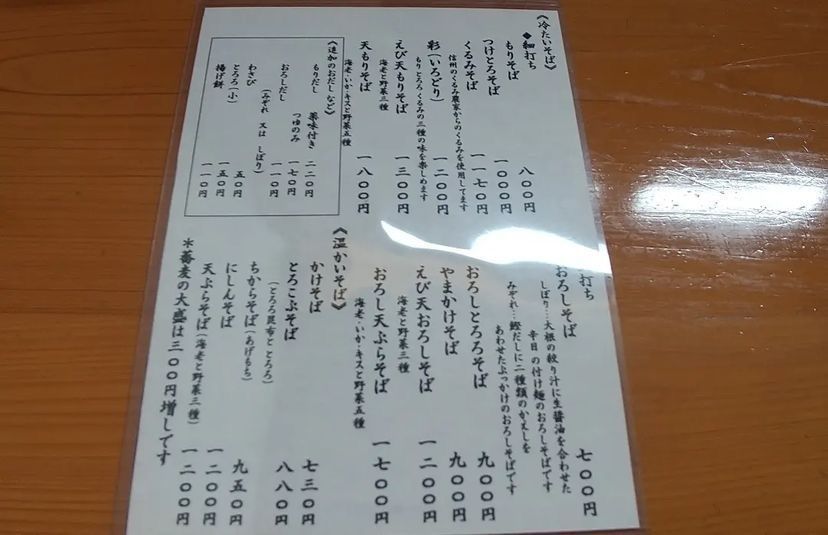 《冷たいそば》
◆細打ち
もりそば 八〇〇円
つけとろそば 一〇〇〇円
くるみそば 一一七〇円
信州のくるみ農家からのくるみを使用してます
彩(いろどり) 一二〇〇円
もりとろろくるみの三種の味を楽しめます
えび天もりそば 一三〇〇円
海老と野菜三種
天もりそば 一八〇〇円
海老・いか・キスと野菜五種
《追加のおだしなど》
もりだし 薬味付き 二二〇円
つゆのみ 一七〇円
おろしだし 一一〇円
(みぞれ 又は しぼり)
わさび 五〇円
とろろ(小) 一五〇円
揚げ餅 一一〇円
打ち
おろしそば 七〇〇円
しぼり…大根の絞り汁に生醤油を合わせた
辛目の付け麺のおろしそばです
みぞれ…鰹だしに二種類のかえしを
あわせたぶっかけのおろしそばです
おろしとろろそば 九〇〇円
やまかけそば 九〇〇円
えび天おろしそば 一二〇〇円
海老と野菜三種
おろし天ぷらそば 一七〇〇円
海老・いか・キスと野菜五種
《温かいそば》
かけそば 七三〇円
とろこぶそば 八八〇円
(とろろ昆布ととろろ)
ちからそば(あげもち) 九五〇円
にしんそば 一二〇〇円
天ぷらそば(海老と野菜三種) 一二〇〇円
＊蕎麦の大盛は三〇〇円増しです